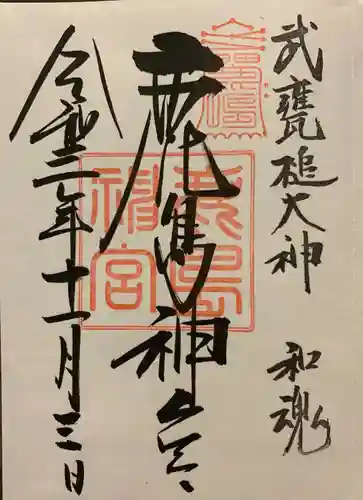 武甕槌大神 和魂
鹿島神宮
鹿島
神宮
令和二年十一月三日